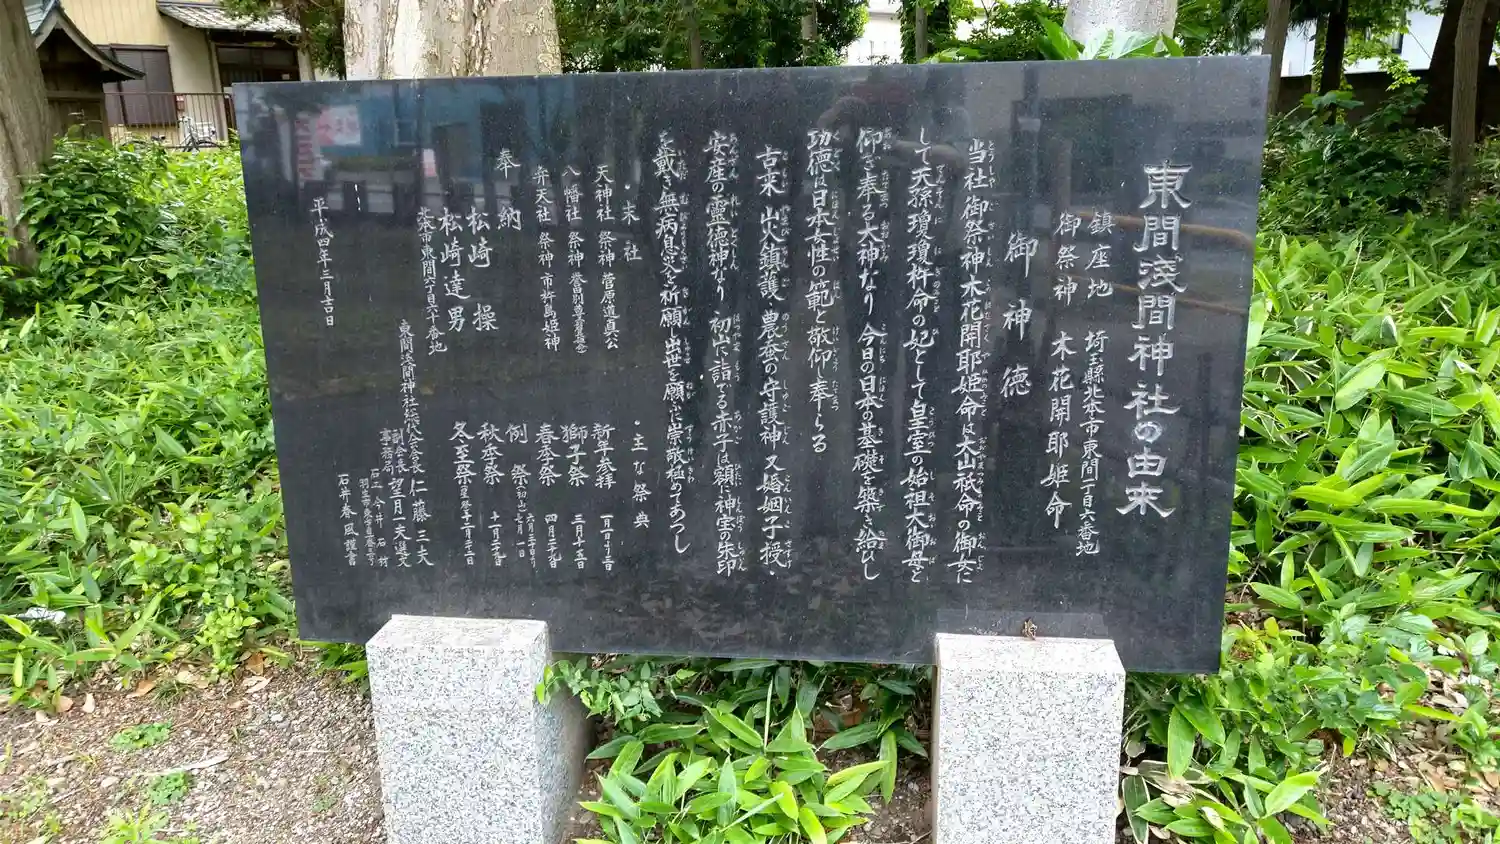 東間淺間神社の由来
鎮座地 埼玉縣北本市東間一丁目六番地
御祭神 木花開耶姫命
御神徳
当社御祭神木花開耶姫命は大山祇命の御女に
して天孫瓊瓊杵命の妃として皇室の始祖大御母と
仰ぎ奉る大神なり 今日の日本の基礎を築き給ひし
功徳は日本女性の範と敬仰奉らる
古来 山火鎮護 農蚕の守護神 又婚姻子授・
安産の霊徳神なり 初山に詣でる赤子は額に神宝の朱印
を戴き無病息災を祈願 出世を願ふ崇敬極めてあつし
・末社
天神社 祭神 菅原道真公
八幡社 祭神 誉田別尊
弁天社 祭神 市杵島姫神
・主な祭典
新年参拝 一月一日より三日
獅子祭 三月十五日
春季祭 四月二十九日
例祭(初山) 六月三十日より七月一日
秋季祭 十一月二十九日
冬至祭(星祭)十二月二十二日
奉納
松崎 操
松崎達男
北本市東間六丁目六十番地
東間浅間神社総代会会長 仁藤三夫
副会長 事務局 望月一夫選文
石工 今井石材
石井春風謹書
平成四年三月吉日